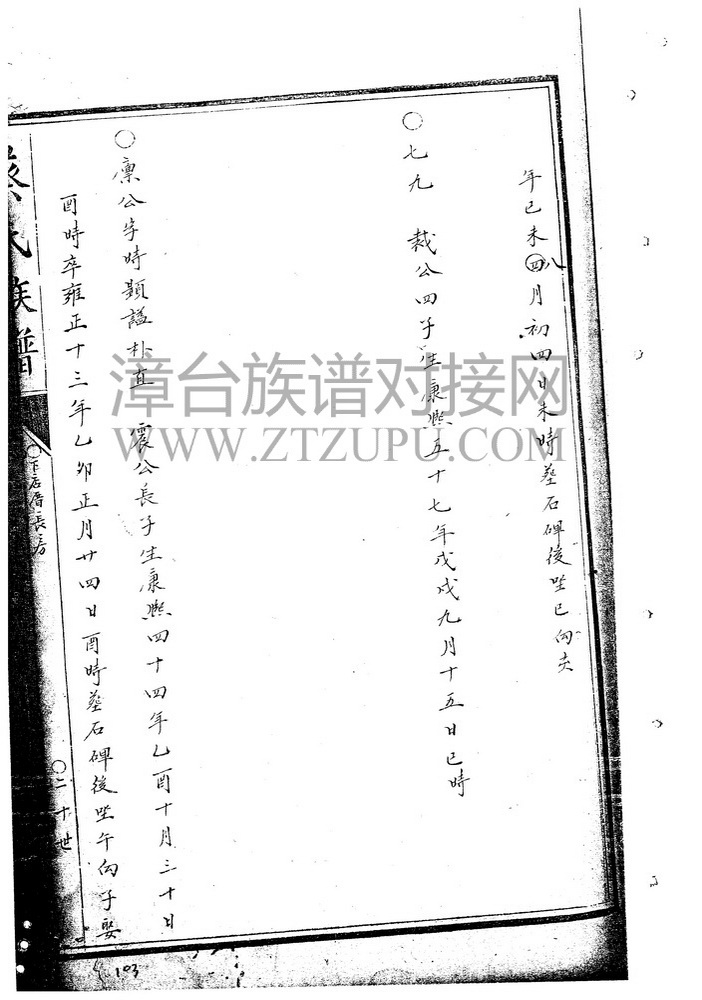 年己未四八月初四日未時葬石碑後坐巳向亥
○七九 裁公四子生康熙五十七年戊戌九月十五日巳時
○廩公字時顯謚朴直 震公長子生康熙四十四年乙酉十月三十日
酉時卒雍正十三年乙卯正月廿四日酉時葬石碑後坐午向子娶
蔡氏族譜
○下店厝長房
○二十世
漳台族谱对接网
WWW.ZTZUPU.COM
103